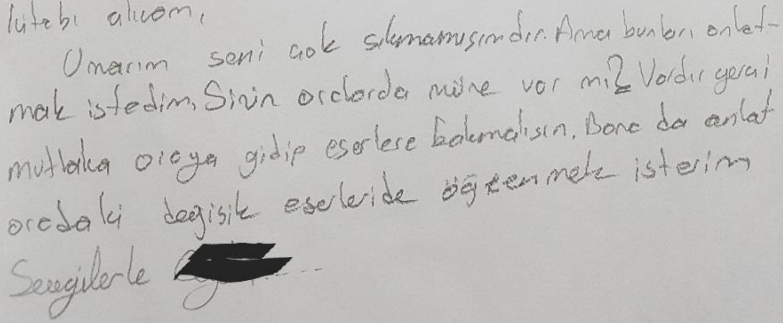 alıcam,
Umarım seni çok sıkmamışımdır. Ama bunları anlat-
mak istedim, Sizin orclarda müze var mı? Vardır gerçi
mutlaka oraya gidip eserlere bakmalısın. Bana da anlat
oradaki değişik eserleride öğrenmek isterim
Sevgilerle